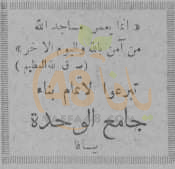 « انما يعمر مساجد الله
من آمن بالله واليوم الآخر »
( صدق الله العظيم )
تبرعوا لاتمام بناء
جامع الوحدة
بيافا